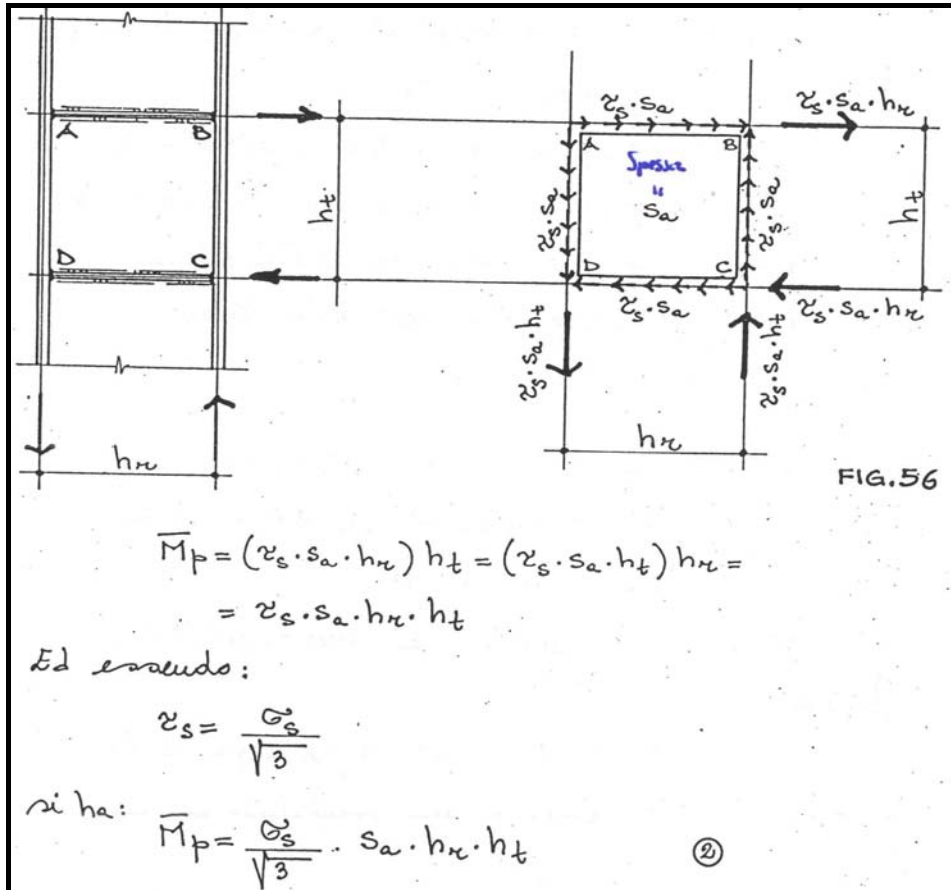 A B
D C
hₜ
hᵣ
τₛ·sₐ
τₛ·sₐ·hᵣ
A B
τₛ·sₐ
Spessore
sₐ
τₛ·sₐ
hₜ
D C
τₛ·sₐ
τₛ·sₐ·hᵣ
τₛ·sₐ·hₜ
τₛ·sₐ·hₜ
hᵣ
FIG.56
M̅p = (τₛ·sₐ·hᵣ) hₜ = (τₛ·sₐ·hₜ) hᵣ =
= τₛ·sₐ·hᵣ·hₜ
Ed essendo:
τₛ = σₛ / √3
si ha:
M̅p = σₛ / √3 · sₐ·hᵣ·hₜ ②